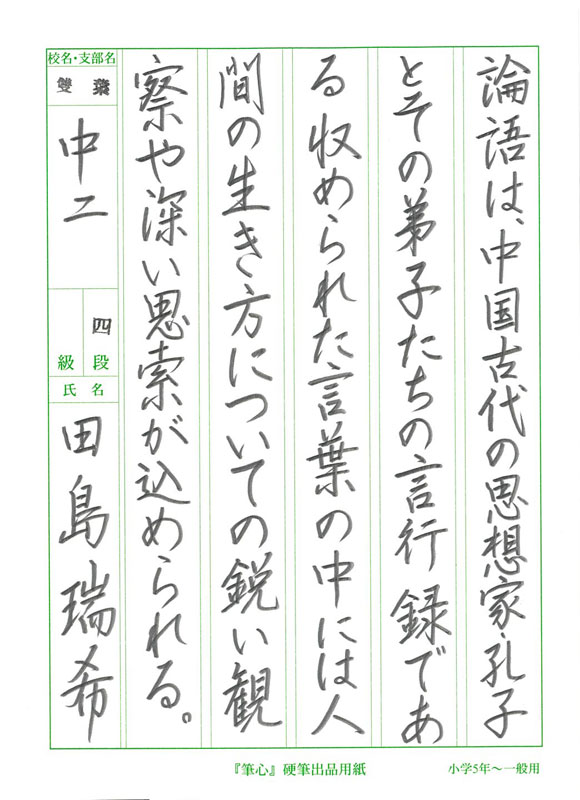 論語は、中国古代の思想家・孔子
とその弟子たちの言行録であ
る収められた言葉の中には人
間の生き方についての鋭い観
察や深い思索が込められる。
校名・支部名
雙葉
中二
四段
級
氏名
田島瑞希
『筆心』硬筆出品用紙
小学5年〜一般用